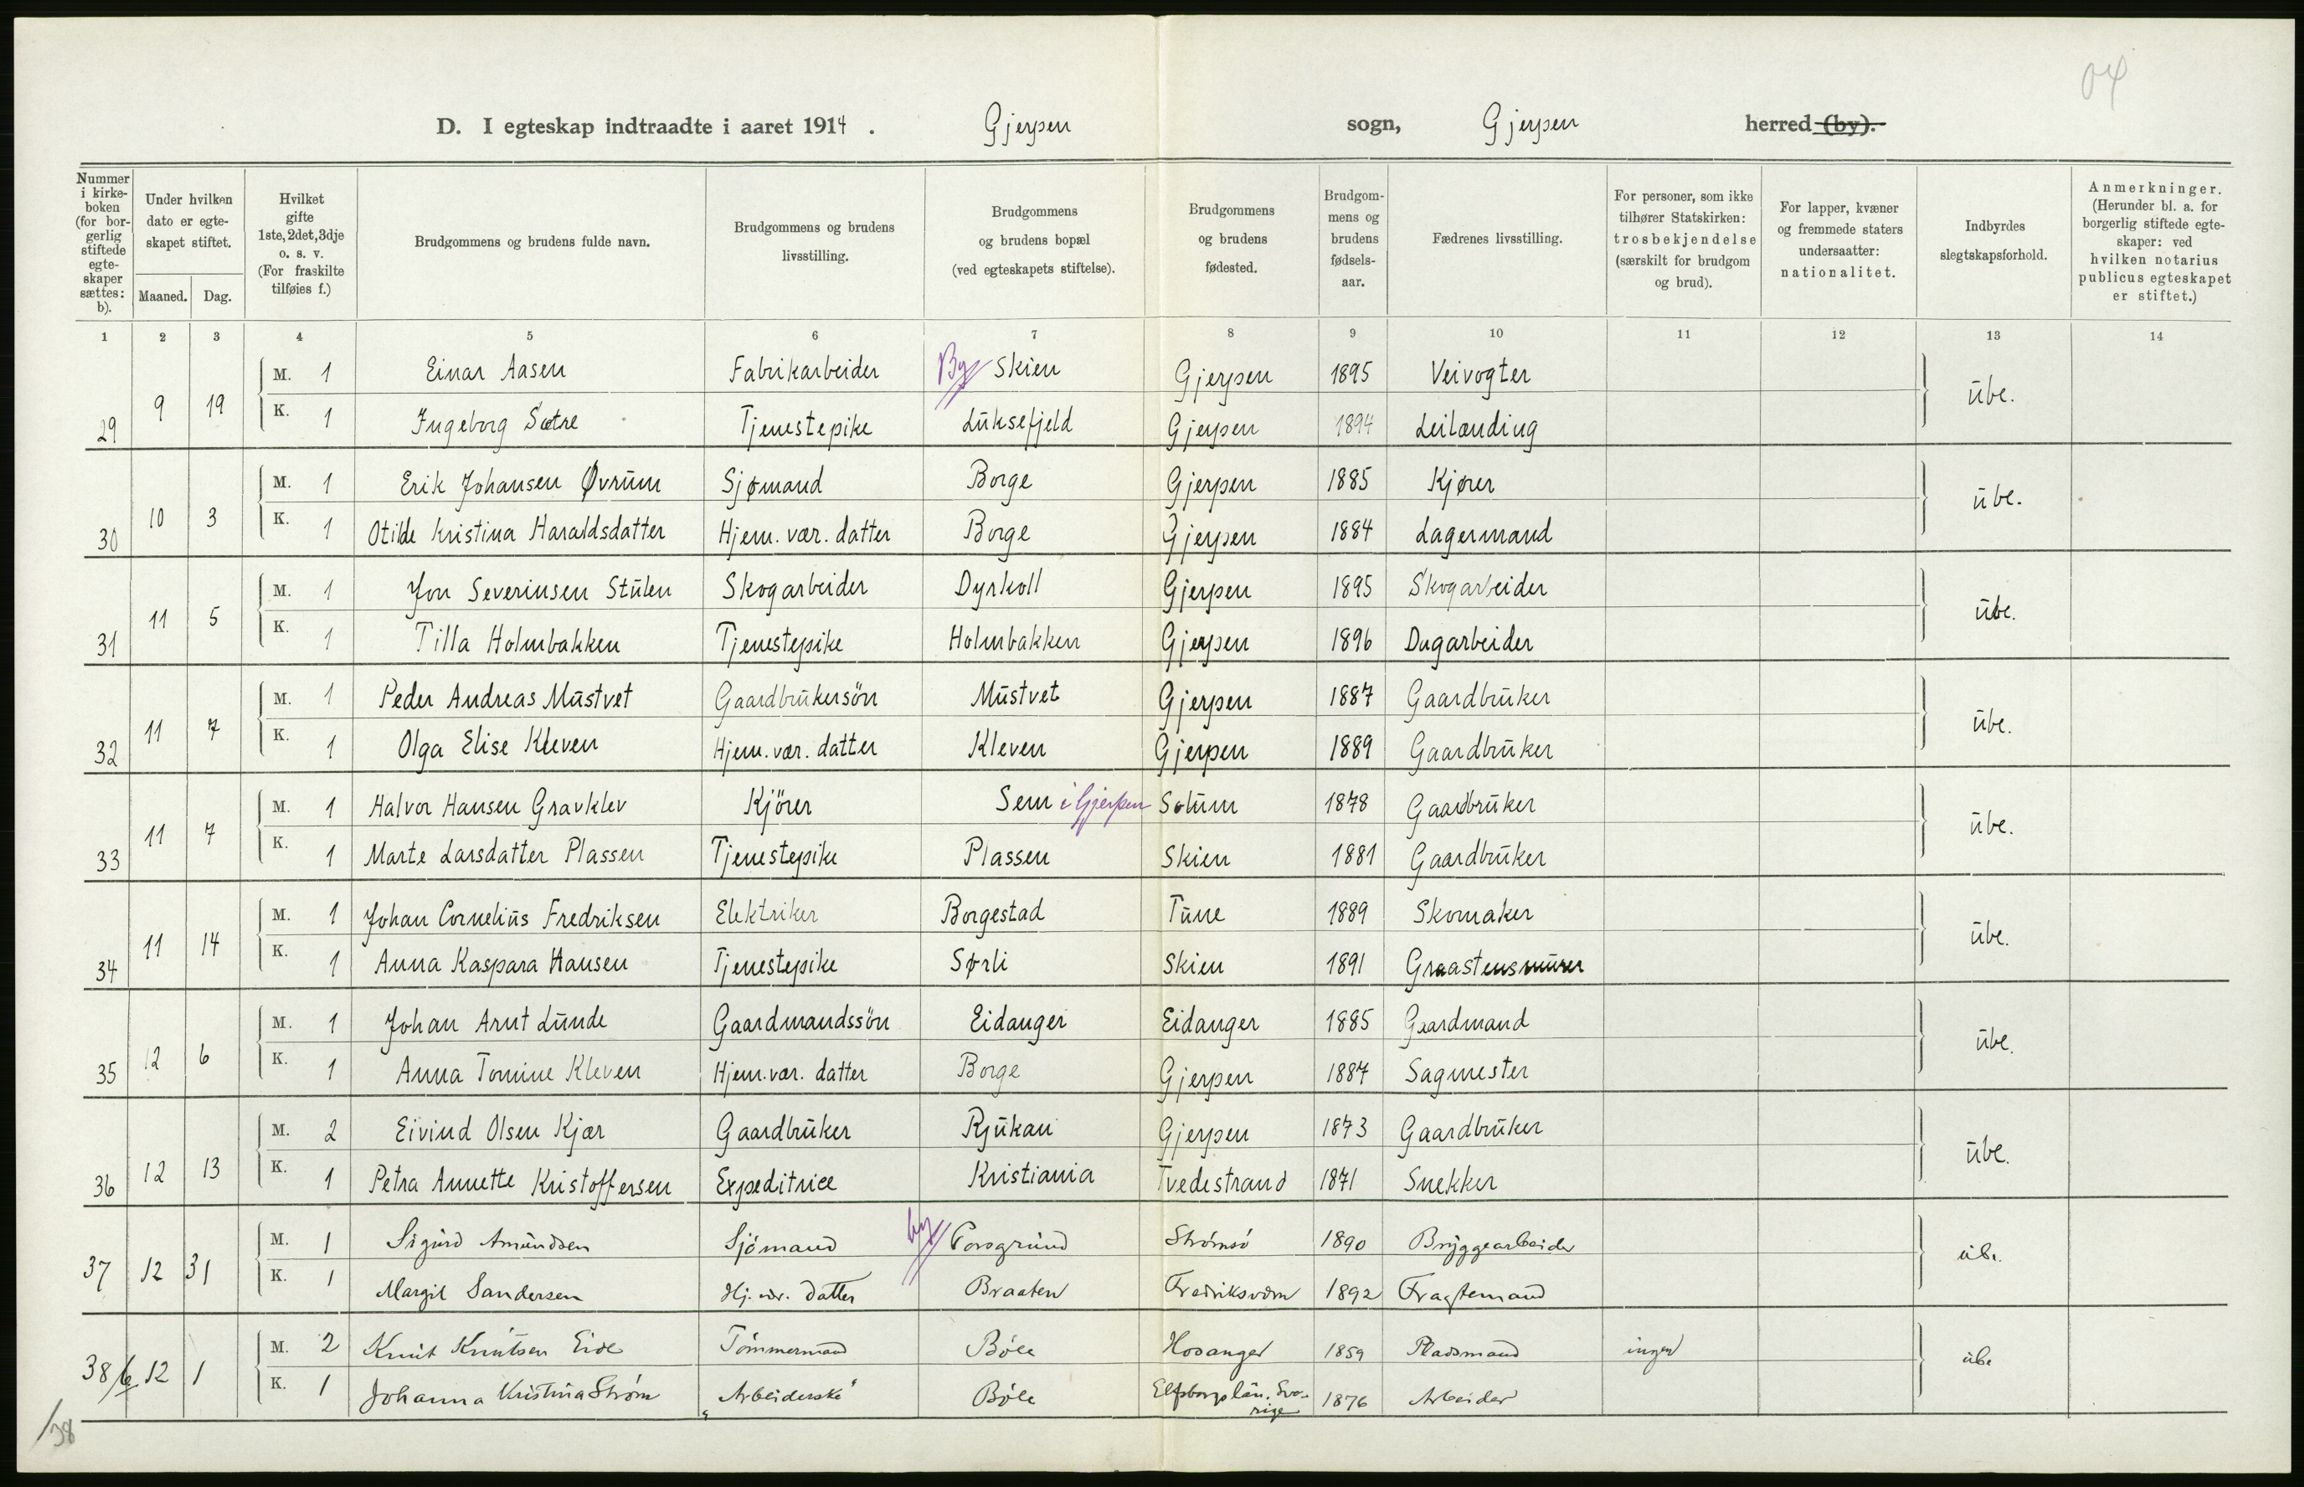 04
D. I egteskap indtraadte i aaret 1914. Gjerpen sogn, Gjerpen herred (by).
Nummer i kirkeboken (for borgerlig stiftede egteskaper sættes: b). Under hvilken dato er egteskapet stiftet. Maaned. Dag. Hvilket gifte 1ste, 2det, 3dje o. s. v. (For fraskilte tilføies f.) Brudgommens og brudens fulde navn. Brudgommens og brudens livsstilling. Brudgommens og brudens bopæl (ved egteskapets stiftelse). Brudgommens og brudens fødested. Brudgommens og brudens fødselsaar. Fædrenes livsstilling. For personer, som ikke tilhører Statskirken: trosbekjendelse (særskilt for brudgom og brud). For lapper, kvæner og fremmede staters undersaatter: nationalitet. Indbyrdes slegtskapsforhold. Anmerkninger. (Herunder bl. a. for borgerlig stiftede egteskaper: ved hvilken notarius publicus egteskapet er stiftet.)
1 2 3 4 5 6 7 8 9 10 11 12 13 14
29 9 19 M. 1 Einar Aasen Fabrikarbeider By Skien Gjerpen 1895 Veivogter übe.
K. 1 Ingeborg Sætre Tjenestepike Luksefjeld Gjerpen 1894 Leilænding
30 10 3 M. 1 Erik Johansen Øvrum Sjømand Borge Gjerpen 1885 Kjører übe.
K. 1 Otilde Kristina Haraldsdatter Hjem. vær. datter Borge Gjerpen 1884 Lagermand
31 11 5 M. 1 Jon Severinsen Stulen Skogarbeider Dyrkoll Gjerpen 1895 Skogarbeider übe.
K. 1 Tilla Holmbakken Tjenestepike Holmbakken Gjerpen 1896 Dagarbeider
32 11 7 M. 1 Peder Andreas Mustvet Gaardbrukersön Mustvet Gjerpen 1887 Gaardbruker übe.
K. 1 Olga Elise Kleven Hjem. vær. datter Kleven Gjerpen 1889 Gaardbruker
33 11 7 M. 1 Halvor Hansen Gravklev Kjörer Sem i Gjerpen Solum 1878 Gaardbruker übe.
K. 1 Marte Larsdatter Plassen Tjenestepike Plassen Skien 1881 Gaardbruker
34 11 14 M. 1 Johan Cornelius Fredriksen Elektriker Borgestad Tune 1889 Skomaker übe.
K. 1 Anna Kaspara Hansen Tjenestepike Sørli Skien 1891 Graastensmurer
35 12 6 M. 1 Johan Arnt Lunde Gaardmandssön Eidanger Eidanger 1885 Gaardmand übe.
K. 1 Anna Tomine Kleven Hjem. vær. datter Borge Gjerpen 1887 Sagmester
36 12 13 M. 2 Eivind Olsen Kjær Gaardbruker Rjukan Gjerpen 1873 Gaardbruker übe.
K. 1 Petra Annette Kristoffersen Expeditrice Kristiania Tvedestrand 1871 Snekker
37 12 31 M. 1 Sigurd Amundsen Sjömand by Porsgrund Strömsö 1890 Bryggearbeider übe.
K. 1 Margit Sandersen Hj. vær. datter Braaten Fredriksværn 1892 Fragtemand
38/b 12 1 M. 2 Knut Knutsen Eide Tömmermand Böle Hosanger 1859 Pladsmand ingen übe
K. 1 Johanna Kristina Strøm "Arbeiderske" Böle Elfsborgs län. Sverige 1876 Arbeider
/38